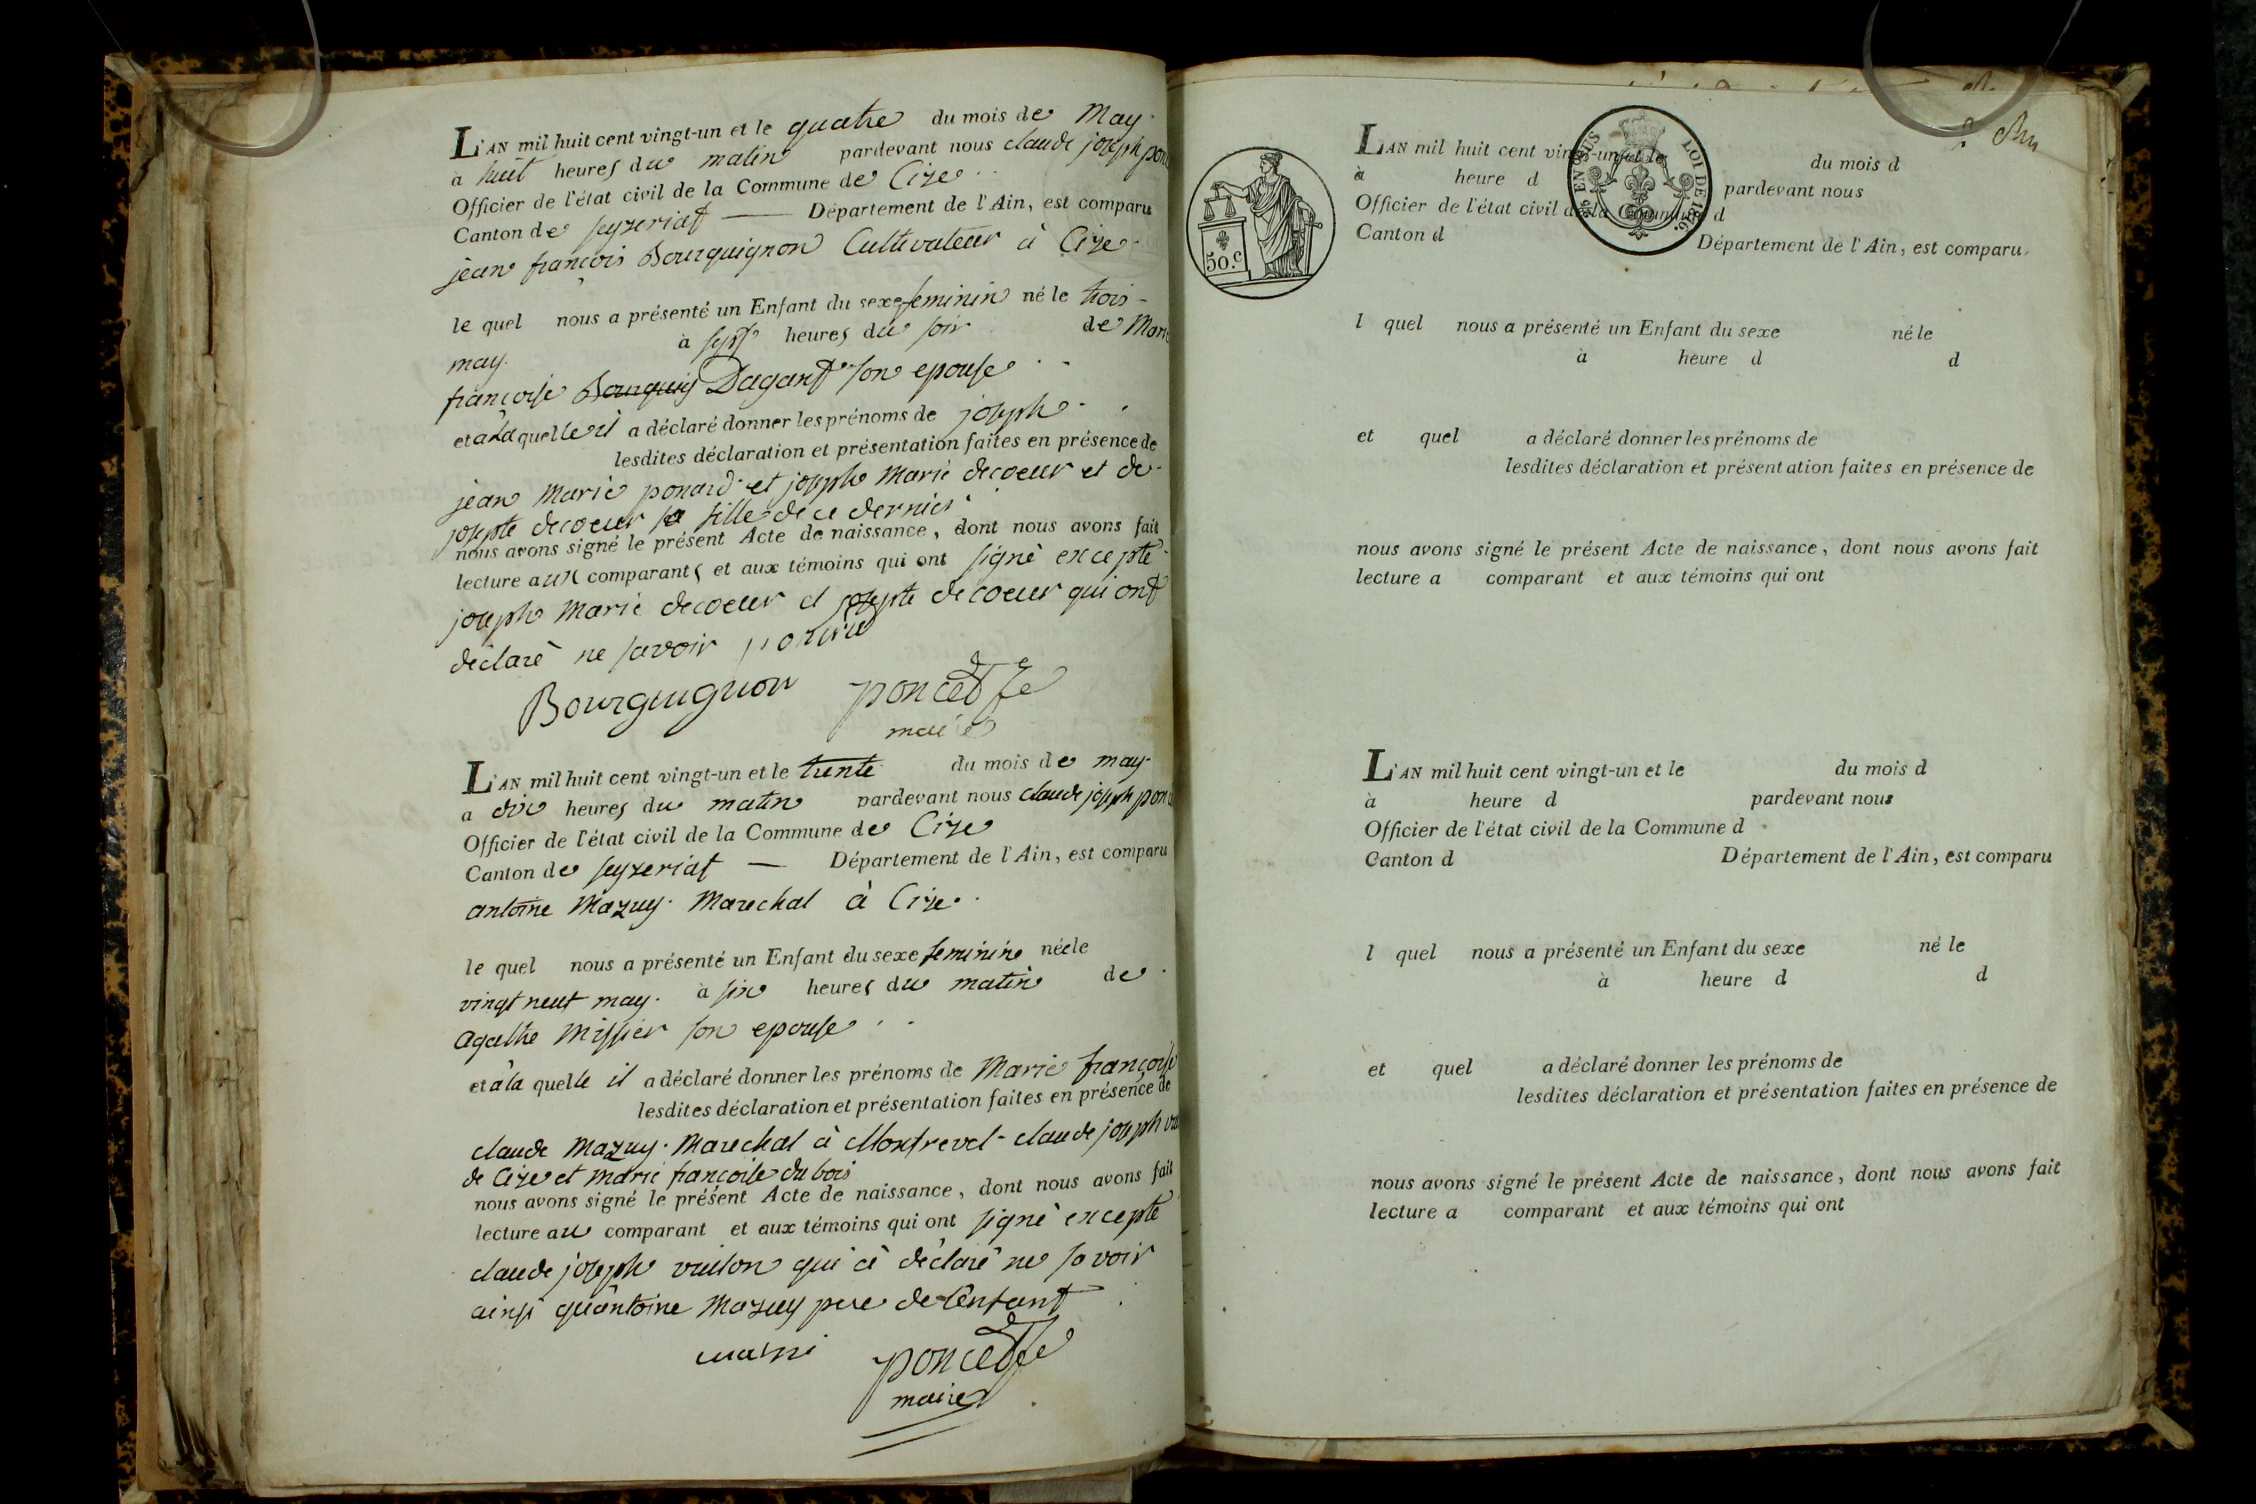 L'AN mil huit cent vingt-un et le quatre du mois de May
a huit heures du matin pardevant nous claude joseph pon
Officier de l'état civil de la Commune de Cize
Canton de seyzeriat Département de l'Ain, est comparu
jean françois Bourguignon Cultivateur à Cize
le quel nous a présenté un Enfant du sexe feminin né le trois
may. à sept heures du soir de Marie
françoise Bourguig Dagant son epouse
et a la quelle il a déclaré donner les prénoms de josephe
lesdites déclaration et présentation faites en présence de
jean Marie ponard et joseph Marie decoeur et de
josepte decoeur sa fille de ce dernier
nous avons signé le présent Acte de naissance, dont nous avons fait
lecture aux comparants et aux témoins qui ont signé excepté
joseph Marie decoeur et josepte decoeur qui ont
déclaré ne savoir
Bourguignon poncet
maire
L'AN mil huit cent vingt-un et le trente du mois de may
a dix heures du matin pardevant nous claude joseph pon
Officier de l'état civil de la Commune de Cize
Canton de seyzeriat Département de l'Ain, est comparu
antoine Mazuy Marechal à Cize
le quel nous a présenté un Enfant du sexe feminin née le
vingt neuf may. à six heures du matin de
agathe Missier son epouse
et à la quelle il a déclaré donner les prénoms de Marie françoise
lesdites déclaration et présentation faites en présence de
claude Mazuy Marechal à Montrevel claude joseph
de Cize et marie françoise du bois
nous avons signé le présent Acte de naissance, dont nous avons fait
lecture au comparant et aux témoins qui ont signé excepté
claude joseph vuilon qui à déclaré ne savoir
ainsi qu'antoine Mazuy pere de l'enfant
poncet
maire
L'AN mil huit cent vingt-un et le du mois d
à heure d pardevant nous
Officier de l'état civil de la Commune d
Canton d Département de l'Ain, est comparu
EN SUS LOI DE 1816.
50.c
l quel nous a présenté un Enfant du sexe né le
à heure d d
et quel a déclaré donner les prénoms de
lesdites déclaration et présentation faites en présence de
nous avons signé le présent Acte de naissance, dont nous avons fait
lecture a comparant et aux témoins qui ont
L'AN mil huit cent vingt-un et le du mois d
à heure d pardevant nous
Officier de l'état civil de la Commune d
Canton d Département de l'Ain, est comparu
l quel nous a présenté un Enfant du sexe né le
à heure d d
et quel a déclaré donner les prénoms de
lesdites déclaration et présentation faites en présence de
nous avons signé le présent Acte de naissance, dont nous avons fait
lecture a comparant et aux témoins qui ont